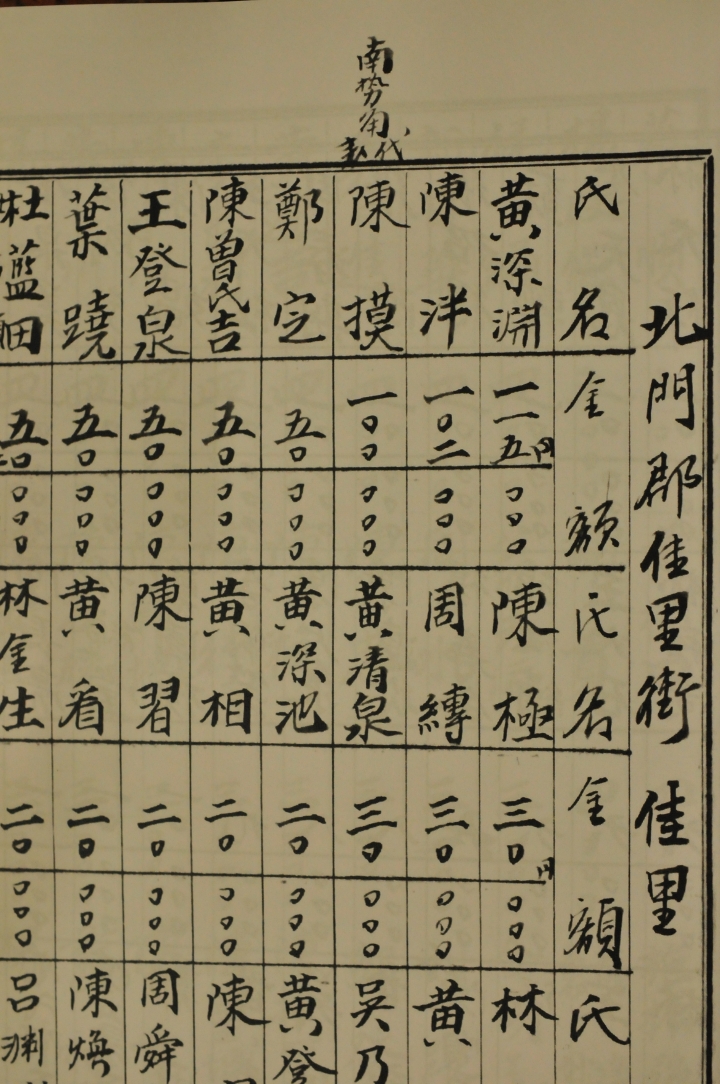 南勢角
北門郡佳里街 佳里
氏名
金額
氏名
金額
氏
黃深淵
一一五円
〇〇〇
陳極
三〇円
〇〇〇
林
陳泮
一〇二
〇〇〇
周縛
三〇
〇〇〇
黃
陳摸
一〇〇
〇〇〇
黃清泉
三〇
〇〇〇
吳乃
鄭定
五〇
〇〇〇
黃深池
二〇
〇〇〇
黃登
陳曾氏吉
五〇
〇〇〇
黃相
二〇
〇〇〇
陳
王登泉
五〇
〇〇〇
陳習
二〇
〇〇〇
周舜
葉蹺
五〇
〇〇〇
黃看
二〇
〇〇〇
陳煥
杜藍田
五〇
〇〇〇
林金生
二〇
〇〇〇
呂渊